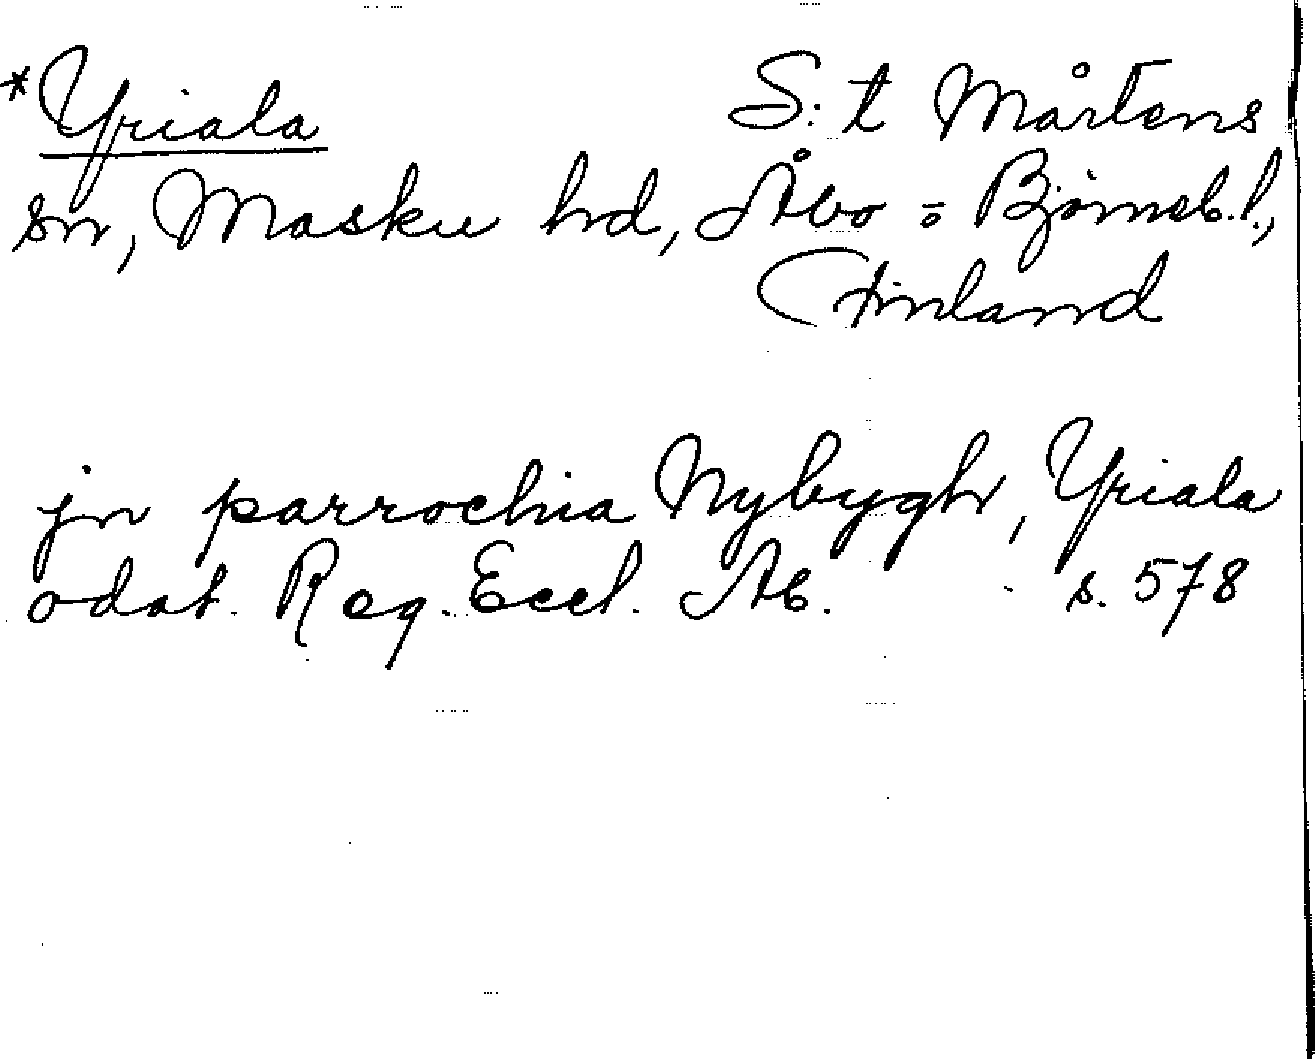 *Yriala S:t Mårtens
sn, Masku hd, Åbo = Björneb. l.,
Finland
jn parrochia Nybygh, Yriala
odat. Reg. Eccl. Ab. s. 578